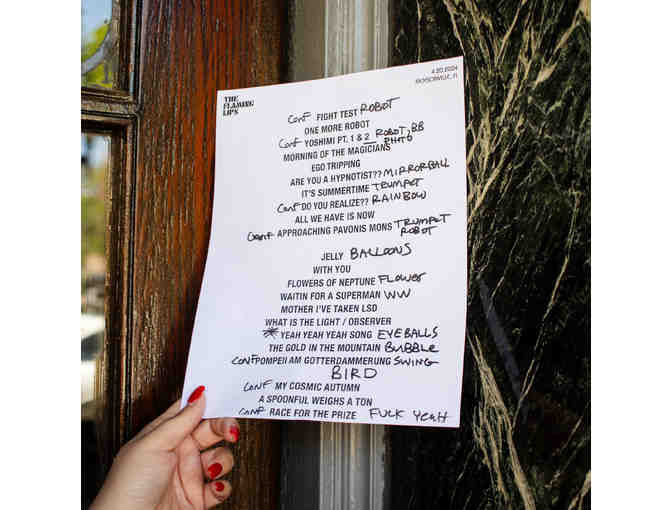 THE
FLAMING
LIPS
4.20.2024
JACKSONVILLE, FL
Conf FIGHT TEST ROBOT
ONE MORE ROBOT
Conf YOSHIMI PT. 1 & 2 ROBOT, BB
PHOTO
MORNING OF THE MAGICIANS
EGO TRIPPING
ARE YOU A HYPNOTIST?? MIRRORBALL
IT'S SUMMERTIME TRUMPET
Conf DO YOU REALIZE?? RAINBOW
ALL WE HAVE IS NOW
Conf APPROACHING PAVONIS MONS TRUMPET
ROBOT
JELLY BALLOONS
WITH YOU
FLOWERS OF NEPTUNE FLOWER
WAITIN FOR A SUPERMAN WW
MOTHER I'VE TAKEN LSD
WHAT IS THE LIGHT / OBSERVER
YEAH YEAH YEAH SONG EYEBALLS
THE GOLD IN THE MOUNTAIN BUBBLE
CONF POMPEII AM GOTTERDAMMERUNG SWING
BIRD
Conf MY COSMIC AUTUMN
A SPOONFUL WEIGHS A TON
CONF RACE FOR THE PRIZE FUCK YEAH